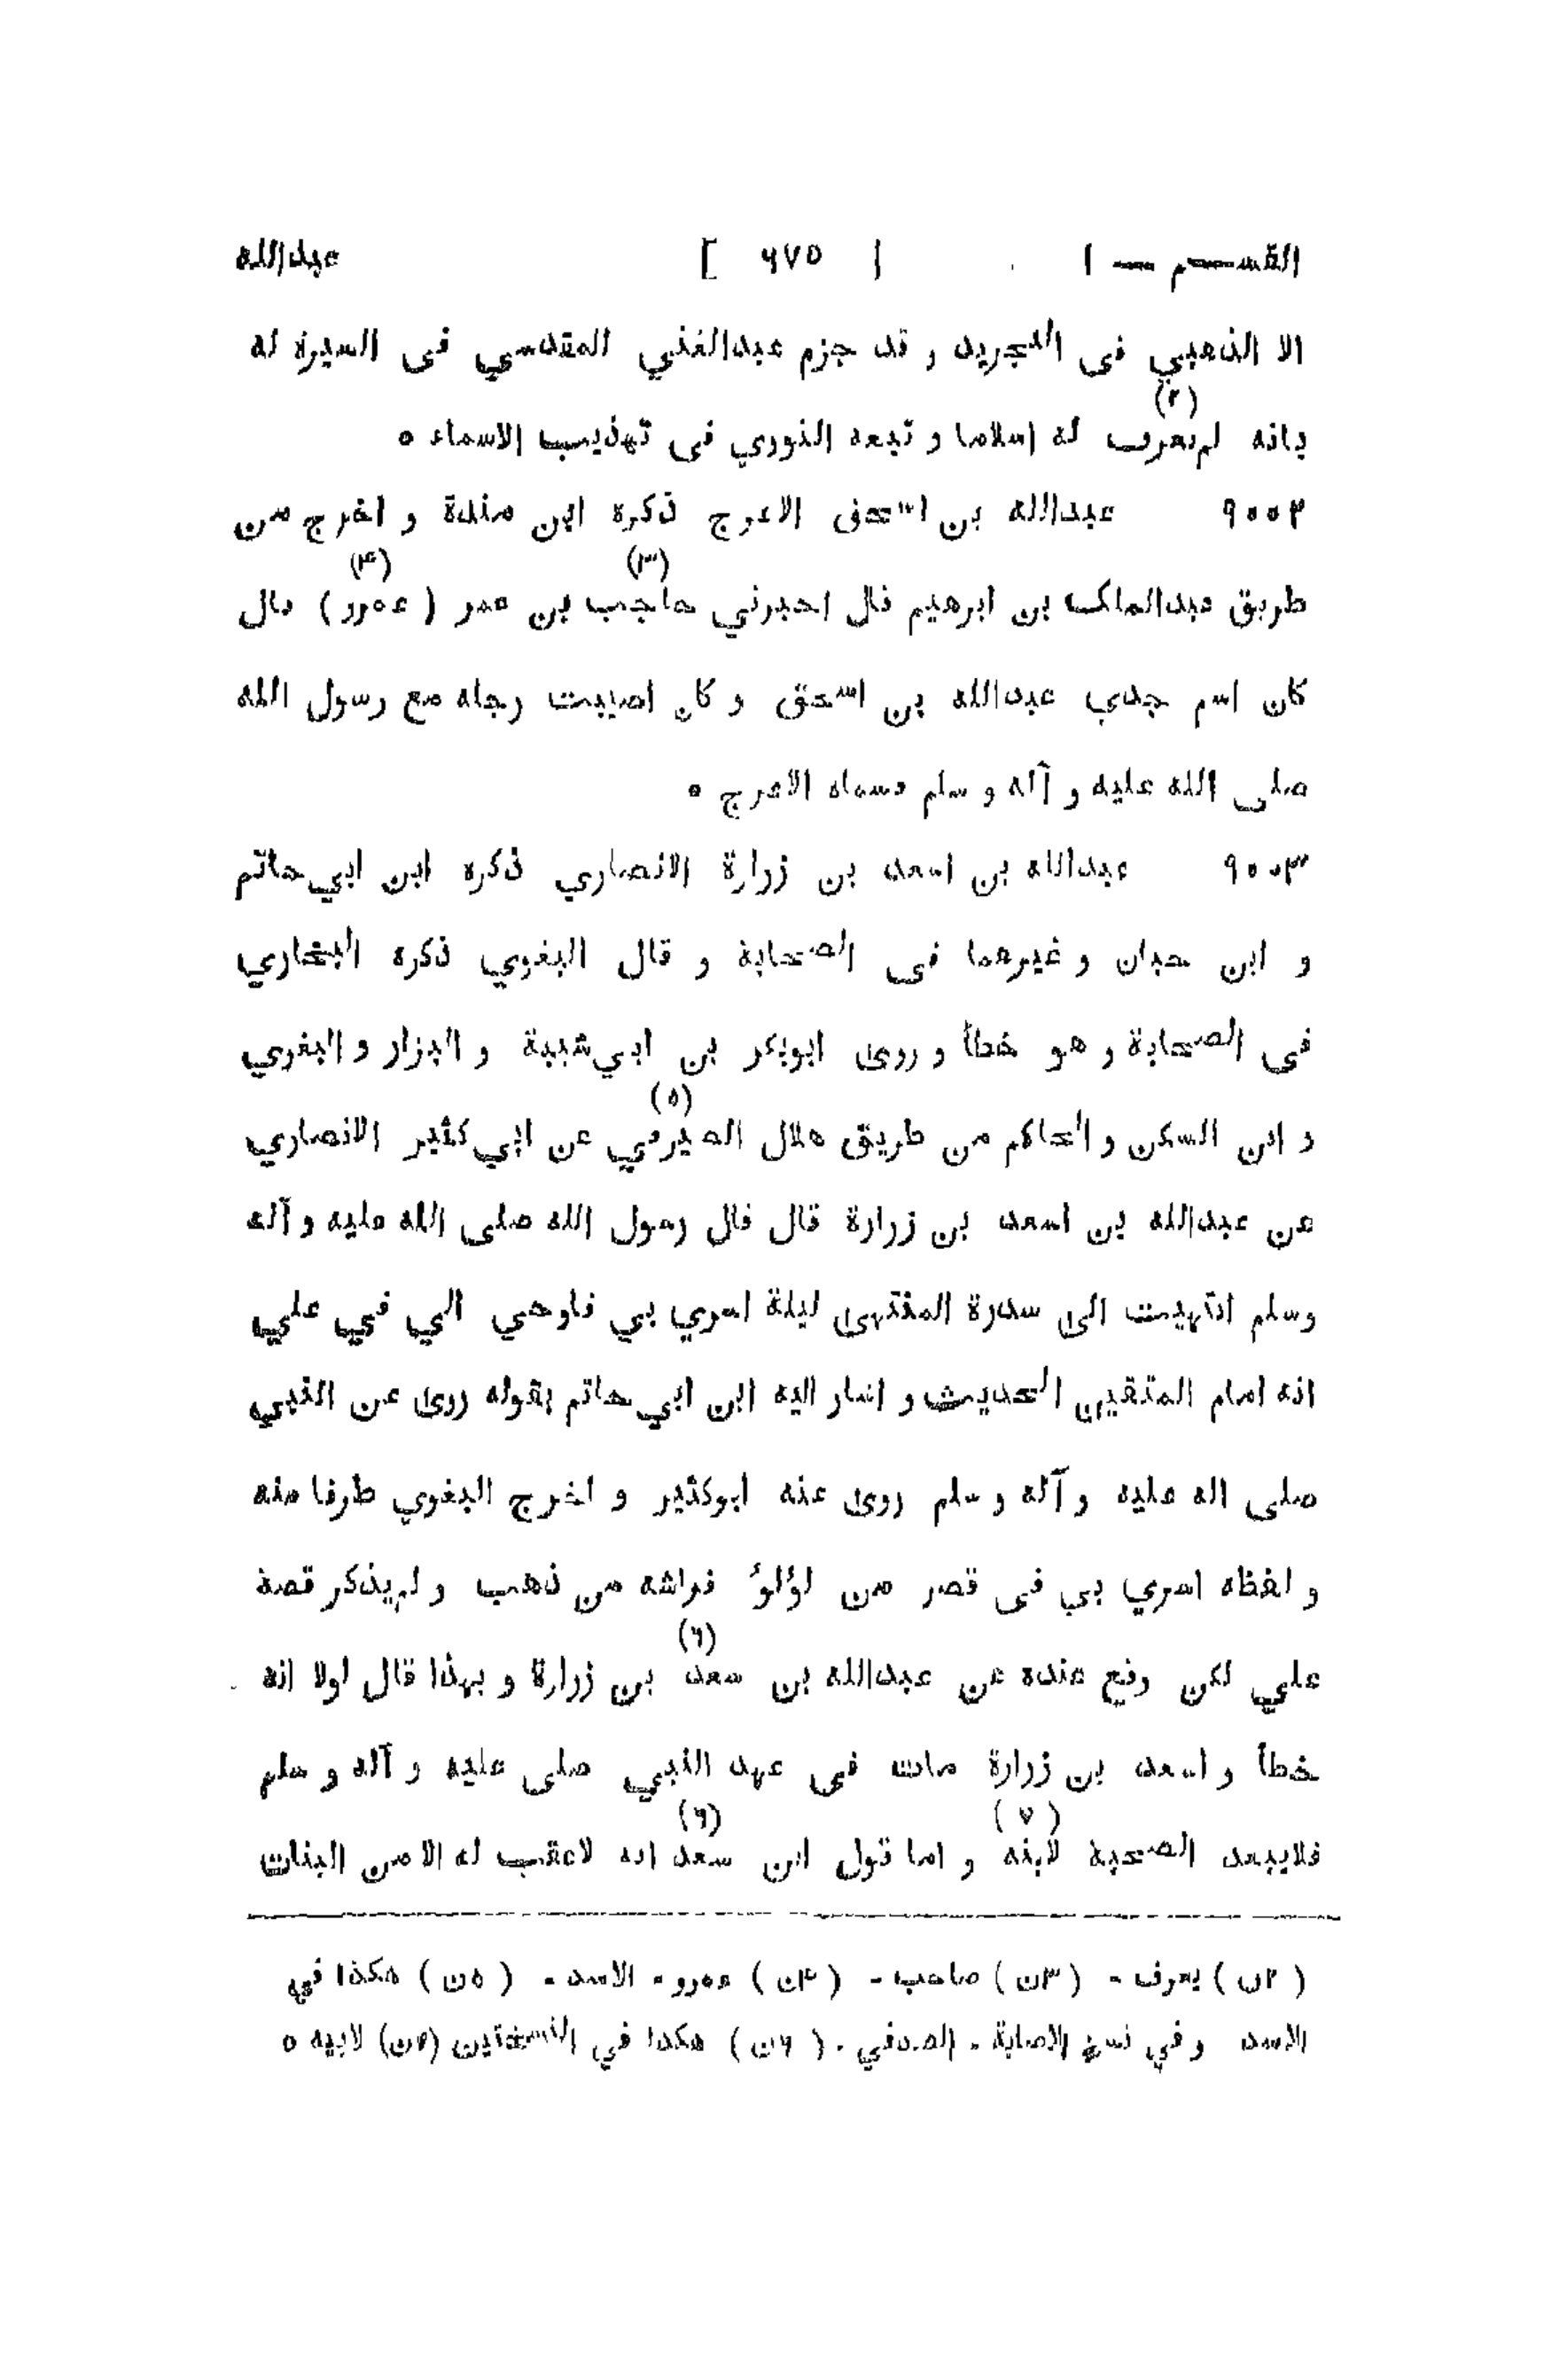 القسم — ١ [ ٦٧٥ ] عبدالله
الا الذهبي فى التجريد و قد جزم عبدالغني المقدسي فى السيرة له
(٢)
بانه لم‌نعرف له اسلاما و تبعه النوري فى تهذيب الاسماء ٥
٩٠٠٢ عبدالله بن اسحق الاعرج ذكره ابن مندة و اخرج من
(٣) (۴)
طريق عبدالملك بن ابرهيم قال اخبرني حاجب بن عمر ( عمرو ) قال
كان اسم جدي عبدالله بن اسحق و كان اصيبت رجله مع رسول الله
صلى الله عليه و آله و سلم فسماه الاعرج ٥
٩٠٠٣ عبدالله بن اسعد بن زرارة الانصاري ذكره ابن ابي‌حاتم
و ابن حبان و غيرهما فى الصحابة و قال البغوي ذكره البخاري
فى الصحابة و هو خطأ و روى ابوبكر بن ابي‌شيبة و البزار و البغوي
(٥)
و ابن السكن و الحاكم من طريق هلال الصيرفي عن ابي‌كثير الانصاري
عن عبدالله بن اسعد بن زرارة قال قال رسول الله صلى الله عليه و آله
وسلم انتهيت الى سدرة المنتهى ليلة اسري بي فاوحي الي في علي
انه امام المتقين الحديث و اشار اليه ابن ابي‌حاتم بقوله روى عن النبي
صلى اله عليه و آله و سلم روى عنه ابوكثير و اخرج البغوي طرفا منه
و لفظه اسري بي فى قصر من لؤلؤ فراشه من ذهب و لم‌يذكر قصة
(٦)
علي لكن وقع عنده عن عبدالله بن سعد بن زرارة و بهذا قال اولا انه
خطأ و اسعد بن زرارة مات فى عهد النبي صلى عليه و آله و سلم
(٧) (٦)
فلايبعد الصحبة لابنه و اما قول ابن سعد انه لاعقب له الا من البنات
( ٢ن ) يعرف - ( ٣ن ) صاحب - ( ۴ن ) عمرو - الاسد - ( ٥ن ) هكذا في
الاسد و في نسخ الاصابة - الصدفي - ( ٦ن ) هكذا في النسختين (٧ن) لابيه ٥